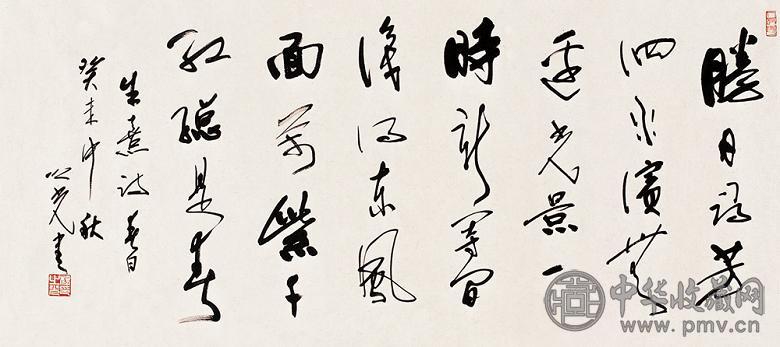 勝日尋芳
泗水濱無
邊光景一
時新等閒
識得東風
面萬紫千
紅總是春
朱熹詩春日
癸未中秋
書
中华收藏网
www.pmv.cn